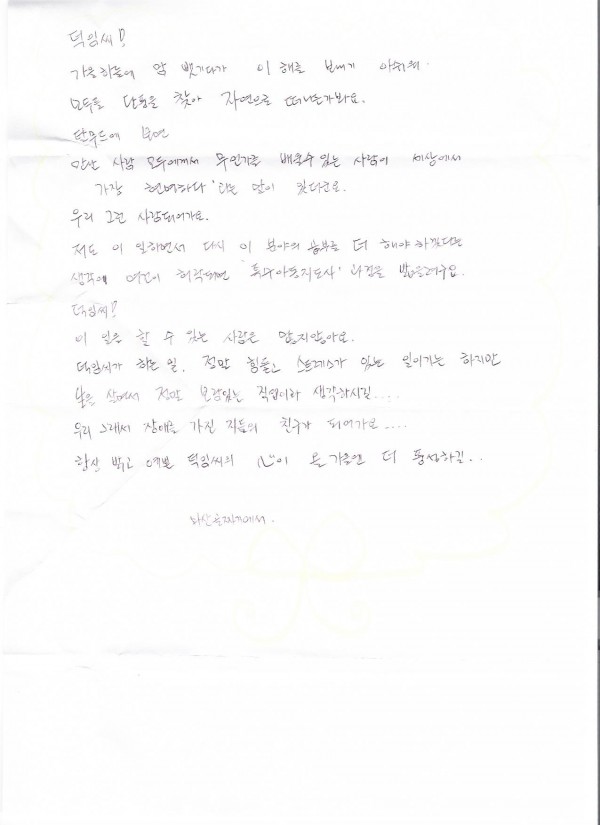 덕임씨!
가을하늘에 맘 뺏기다가 이 해를 보내기 아쉬워
모두들 단풍을 찾아 자연으로 떠나는가봐요.
탈무드에 보면
만난 사람 모두에게서 무언가를 배울수 있는 사람이 세상에서
가장 현명하다' 라는 말이 있다군요.
우리 그런 사람되어가요.
저도 이 일하면서 다시 이 분야의 공부를 더 해야 하겠다는
생각에 여건이 허락되면 '특수아동지도사' 과정을 밟을려구요.
덕임씨!
이 일은 할 수 있는 사람은 많지않아요.
덕임씨가 하는 일, 정말 힘들고 스트레스가 있는 일이기는 하지만
남은 삶에서 정말 보람있는 직업이라 생각하시길....
우리 그래서 장애를 가진 자들의 친구가 되어가요....
항상 밝고 예쁜 덕임씨의 心이 올 가을엔 더 풍성하길..